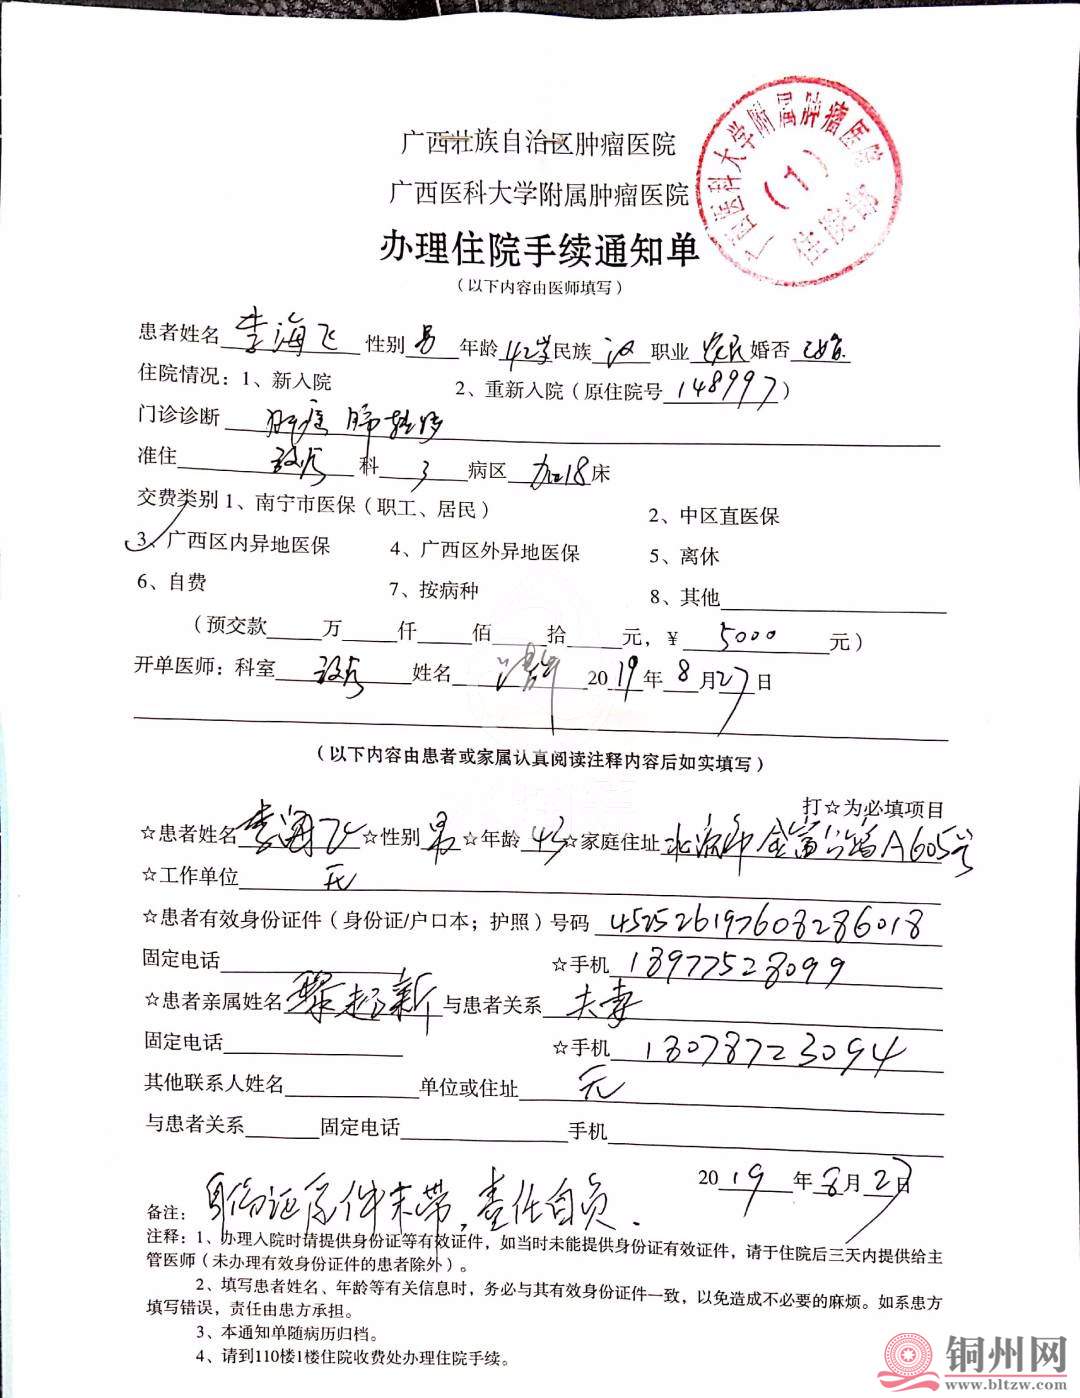 广西壮族自治区肿瘤医院
广西医科大学附属肿瘤医院
广西医科大学附属肿瘤医院
(1)
住院部
办理住院手续通知单
（以下内容由医师填写）
患者姓名 李海飞 性别 男 年龄 42岁 民族 汉 职业 农民 婚否 已婚
住院情况：1、新入院 2、重新入院（原住院号 148997）
门诊诊断
准住 放疗 科 3 病区 加18 床
交费类别 1、南宁市医保（职工、居民） 2、中区直医保
3、广西区内异地医保 4、广西区外异地医保 5、离休
6、自费 7、按病种 8、其他
（预交款 万 仟 佰 拾 元，￥ 5000 元）
开单医师：科室 放疗 姓名 2019年8月27日
（以下内容由患者或家属认真阅读注释内容后如实填写）
打☆为必填项目
☆患者姓名 李海飞 ☆性别 男 ☆年龄 43 ☆家庭住址 北流市金富公路A605号
☆工作单位 无
☆患者有效身份证件（身份证/户口本；护照）号码 452526197608286018
固定电话 ☆手机 18977528099
☆患者亲属姓名 梁超新 与患者关系 夫妻
固定电话 ☆手机 18078723094
其他联系人姓名 单位或住址 无
与患者关系 固定电话 手机
2019年8月27日
备注：身份证原件未带，责任自负.
注释：1、办理入院时请提供身份证等有效证件，如当时未能提供身份证有效证件，请于住院后三天内提供给主
管医师（未办理有效身份证件的患者除外）。
2、填写患者姓名、年龄等有关信息时，务必与其有效身份证件一致，以免造成不必要的麻烦。如系患方
填写错误，责任由患方承担。
3、本通知单随病历归档。
4、请到110楼1楼住院收费处办理住院手续。
铜州网
www.bltzw.com